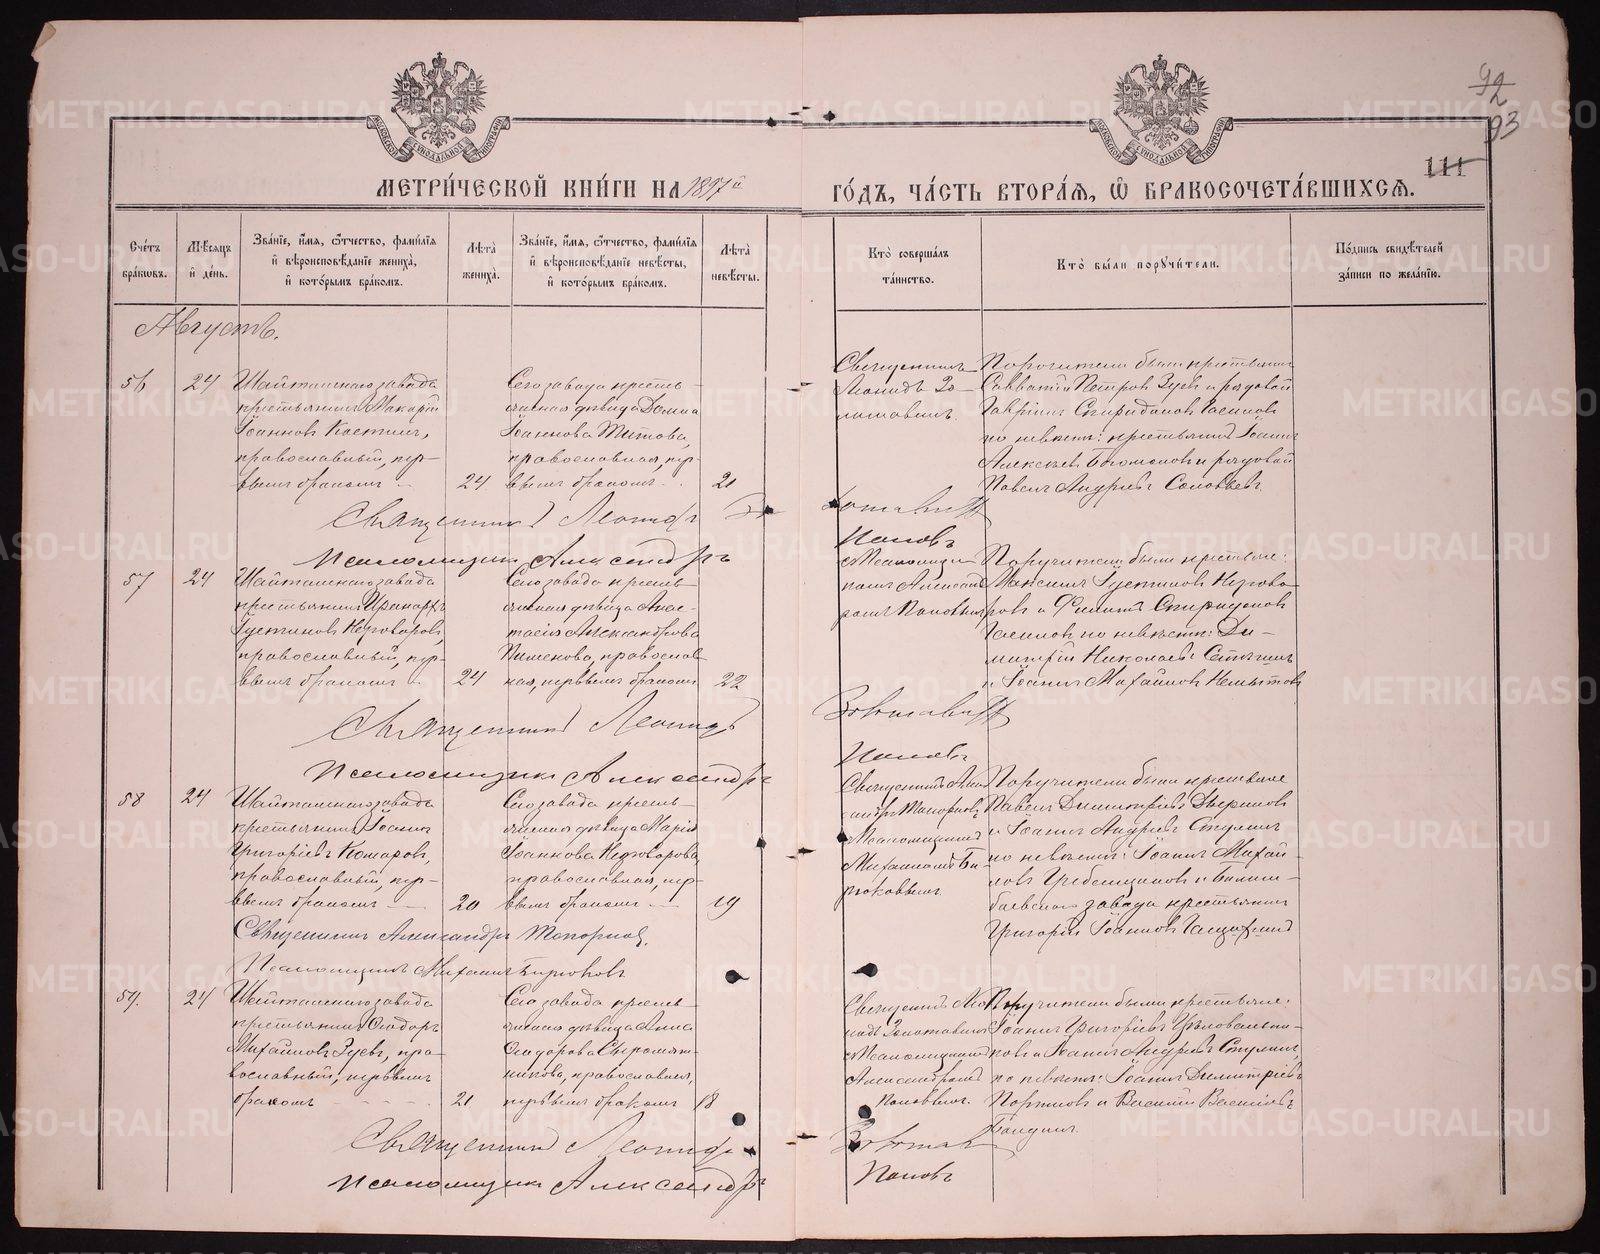 92
93
111
МЕТРИ́ЧЕСКОЙ КНИ́ГИ НА 1897й
ГО́ДЪ, ЧА́СТЬ ВТОРА́Ѧ, Ѡ҆ БРАКОСОЧЕТА́ВШИХСѦ.
Сче́тъ бра́кωвъ.
Мѣ́сяцъ и҆ де́нь.
Зва́нїе, и҆́мя, ѻ҆́тчество, фами́лїя и҆ вѣроисповѣ́данїе жениха̀, и҆ кото́рымъ бра́комъ.
Лѣ́та жениха̀.
Зва́нїе, и҆́мя, ѻ҆́тчество, фами́лїя и҆ вѣроисповѣ́данїе невѣ́сты, и҆ кото́рымъ бра́комъ.
Лѣ́та невѣ́сты.
Кто̀ соверша́лъ та́инство.
Кто̀ бы́ли порꙋчи́тели.
По́дпись свидѣ́телей за́писи по жела́нїю.
Августъ.
56
24
Шайтанскаго завода
крестьянинъ Макарій
Іоанновъ Костинъ,
православный, пер-
вымъ бракомъ
24
Сего завода кресть-
янская дѣвица Домна
Іоаннова Титова,
православная, пер-
вымъ бракомъ
21
Священникъ
Леонидъ Зо-
лотавинъ
Поручители были крестьяне
Савватій Петровъ Зуевъ и рядовой
Гавріилъ Спиридоновъ Гасиловъ
по невѣстѣ: крестьянинъ Іоаннъ
Алексѣевъ Богомоловъ и рядовой
Павелъ Андреевъ Соловьевъ.
Священникъ Леонидъ Золотавинъ
Псаломщикъ Александръ Поповъ
57
24
Шайтанскаго завода
крестьянинъ
Іустиновъ Неговоровъ,
православный, пер-
вымъ бракомъ
24
Сего завода кресть-
янская дѣвица Анас-
тасія Александрова
Пименова, православ-
ная, первымъ бракомъ
22
и Псаломщи-
комъ Александ-
ромъ Поповымъ
Поручители были крестьяне:
Максимъ Іустиновъ Негово-
ровъ и Филиппъ Спиридоновъ
Гасиловъ по невѣстѣ: Ди-
митрій Николаевъ
и Іоаннъ Михайловъ
Священникъ Леонидъ Золотавинъ
Псаломщикъ Александръ Поповъ
58
24
Шайтанскаго завода
крестьянинъ Іоаннъ
Григоріевъ Комаровъ,
православный, пер-
вымъ бракомъ
20
Сего завода кресть-
янская дѣвица Марія
Іоаннова Неговорова
православная, пер-
вымъ бракомъ
19
Священникъ Алек-
сандръ Топорковъ
Псаломщикъ
Михаиломъ Би-
рюковымъ
Поручители были крестьяне
Павелъ Димитріевъ
и Іоаннъ Андреевъ Ступинъ
по невѣстѣ: Іоаннъ Михай-
ловъ Гребенщиковъ и Билим-
баевскаго завода крестьянинъ
Григорій Іоанновъ
Священникъ Александръ Топорковъ.
Псаломщикъ Михаилъ Бирюковъ
59.
24
Шайтанскаго завода
крестьянинъ Ѳеодоръ
Михайловъ Зуевъ, пра-
вославный, первымъ
бракомъ
21
Сего завода кресть-
янская дѣвица Анна
Ѳеодорова Сыромят-
никова, православная,
первымъ бракомъ
18
Священникъ Лео-
нидъ Золотавинъ
и Псаломщикомъ
Александромъ
Поповымъ.
Поручители были крестьяне:
Іоаннъ Григоріевъ Цѣловальни-
ковъ и Іоаннъ Андреевъ Ступинъ,
по невѣстѣ: Іоаннъ Димитріевъ
Портновъ и Василій Васильевъ
Священникъ Леонидъ Золотавинъ
Псаломщикъ Александръ Поповъ
METRIKI.GASO-URAL.RU